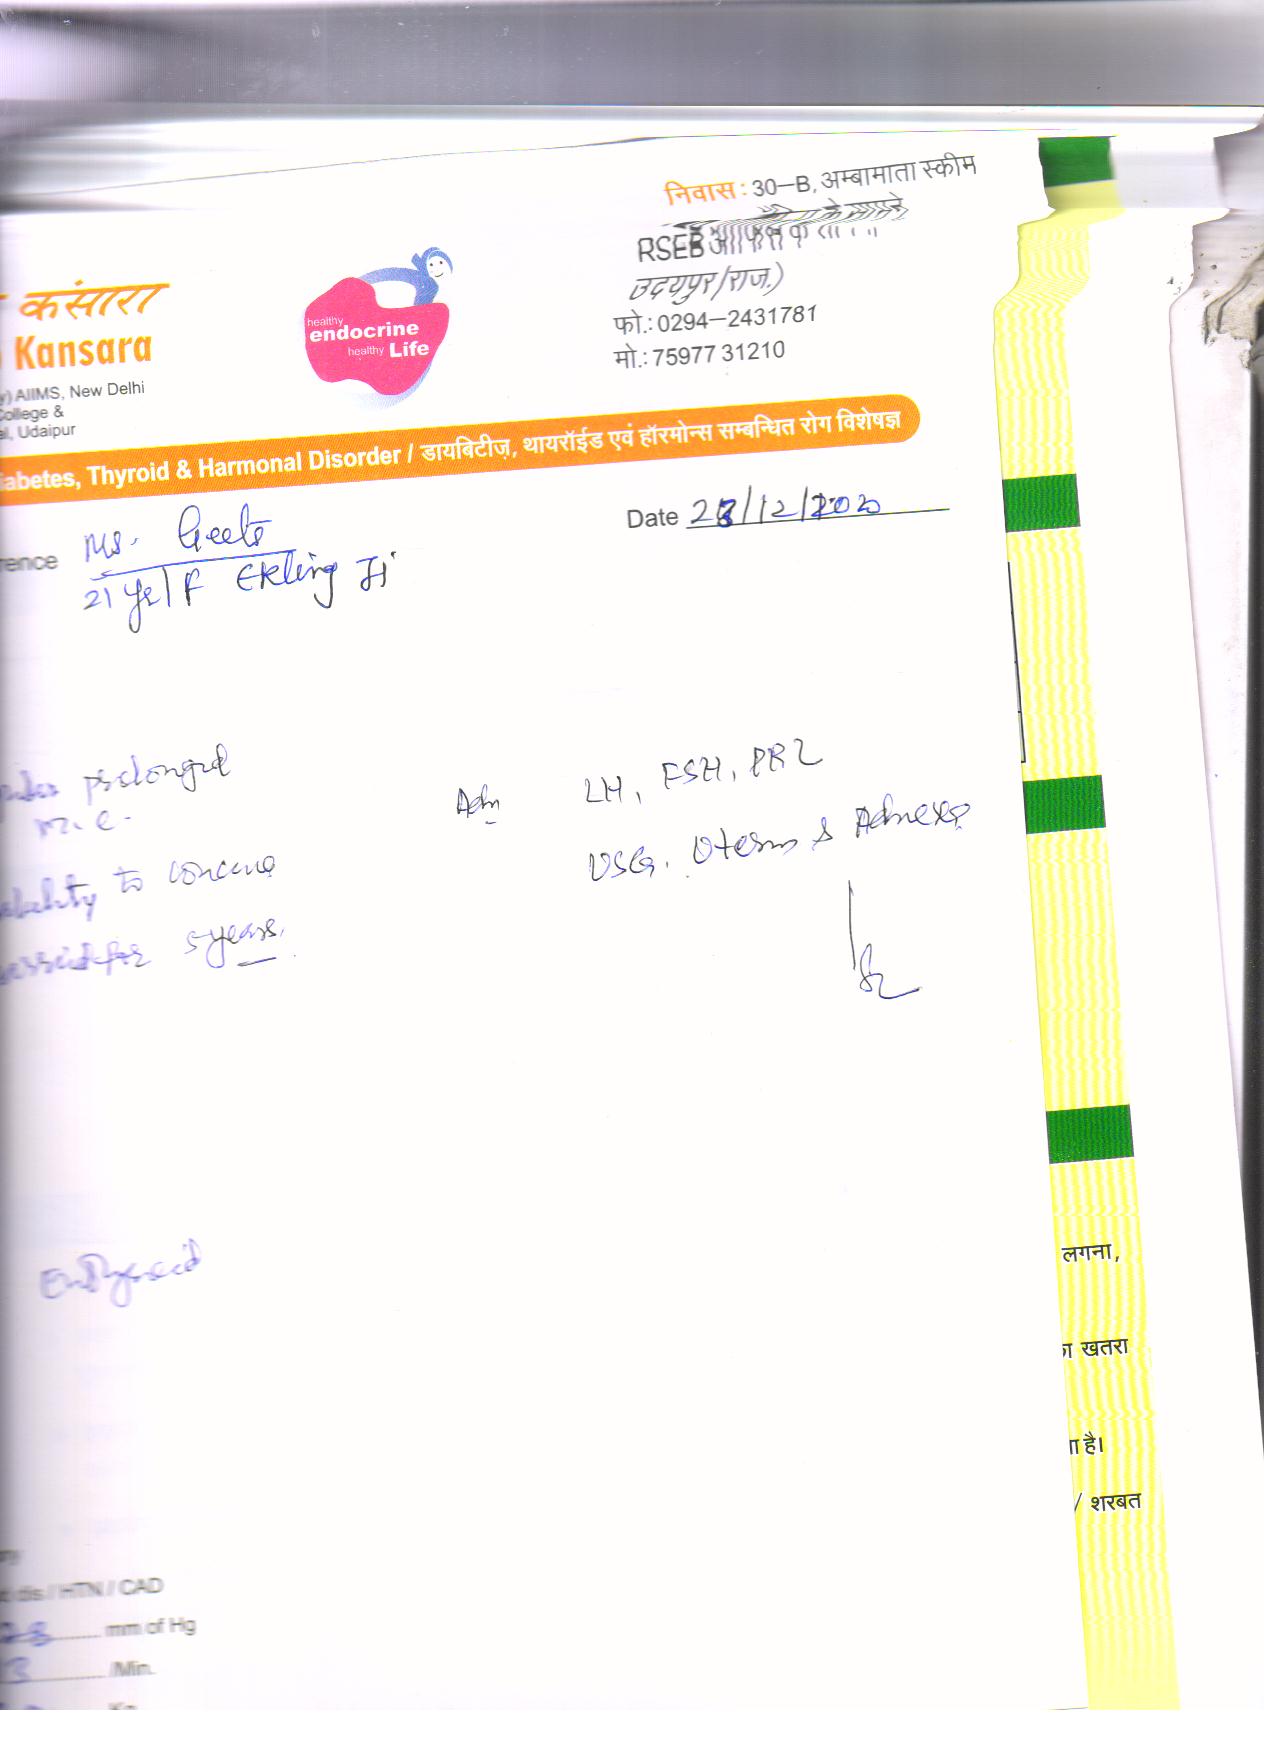 निवास : 30–B, अम्बामाता स्कीम
RSEB
उदयपुर (राज.)
फो.: 0294–2431781
मो.: 75977 31210
कंसारा
Kansara
y) AIIMS, New Delhi
College &
al, Udaipur
healthy
endocrine
healthy Life
iabetes, Thyroid & Harmonal Disorder / डायबिटीज़, थायरॉईड एवं हॉरमोन्स सम्बन्धित रोग विशेषज्ञ
rence Ms. Geeta
Date
21 Yr/F Ekling Ji
prolonged
M.C.
to conceive
for 5 years.
Adv LH, FSH, PRL
USG. Uterus & Adnexa
Euthyroid
लगना,
खतरा
है।
/ शरबत
dis / HTN / CAD
mm of Hg
/Min.